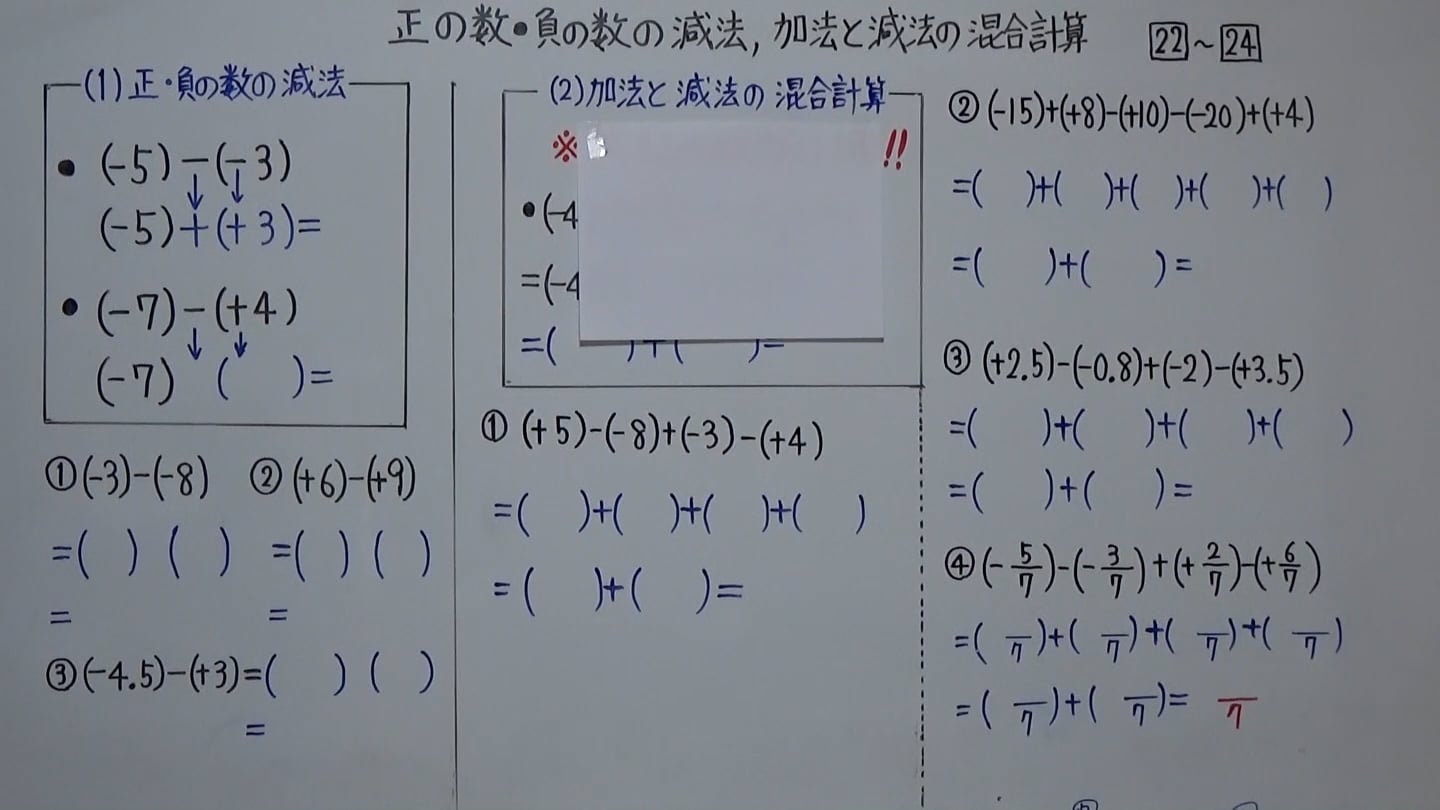 正の数・負の数の減法,加法と減法の混合計算 22～24
(1)正・負の数の減法
• (-5)-(-3)
↓ ↓
(-5)+(+3)=
• (-7)-(+4)
↓ ↓
(-7) ( )=
①(-3)-(-8) ②(+6)-(+9)
=( ) ( ) =( ) ( )
= =
③(-4.5)-(+3)=( ) ( )
=
(2)加法と減法の混合計算
※ !!
•(-4
=(-4
=( )+( )=
①(+5)-(-8)+(-3)-(+4)
=( )+( )+( )+( )
=( )+( )=
②(-15)+(+8)-(+10)-(-20)+(+4)
=( )+( )+( )+( )+( )
=( )+( )=
③(+2.5)-(-0.8)+(-2)-(+3.5)
=( )+( )+( )+( )
=( )+( )=
④(-5/7)-(-3/7)+(+2/7)-(+6/7)
=( /7)+( /7)+( /7)+( /7)
=( /7)+( /7)= /7